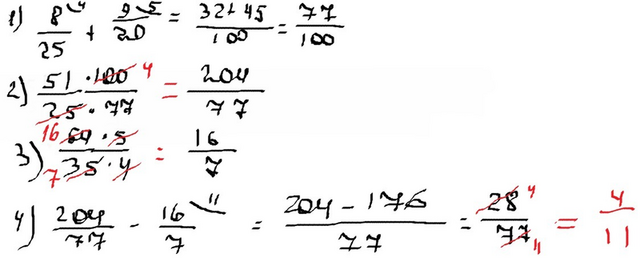 1) 8/25 ⁴ + 9/20 ⁵ = 32+45/100 = 77/100
2) 51·100/25·77 4 = 204/77
3) 16 64·5/7 35·4 = 16/7
4) 204/77 - 16/7 ¹¹ = 204-176/77 = 28/77 4 11 = 4/11